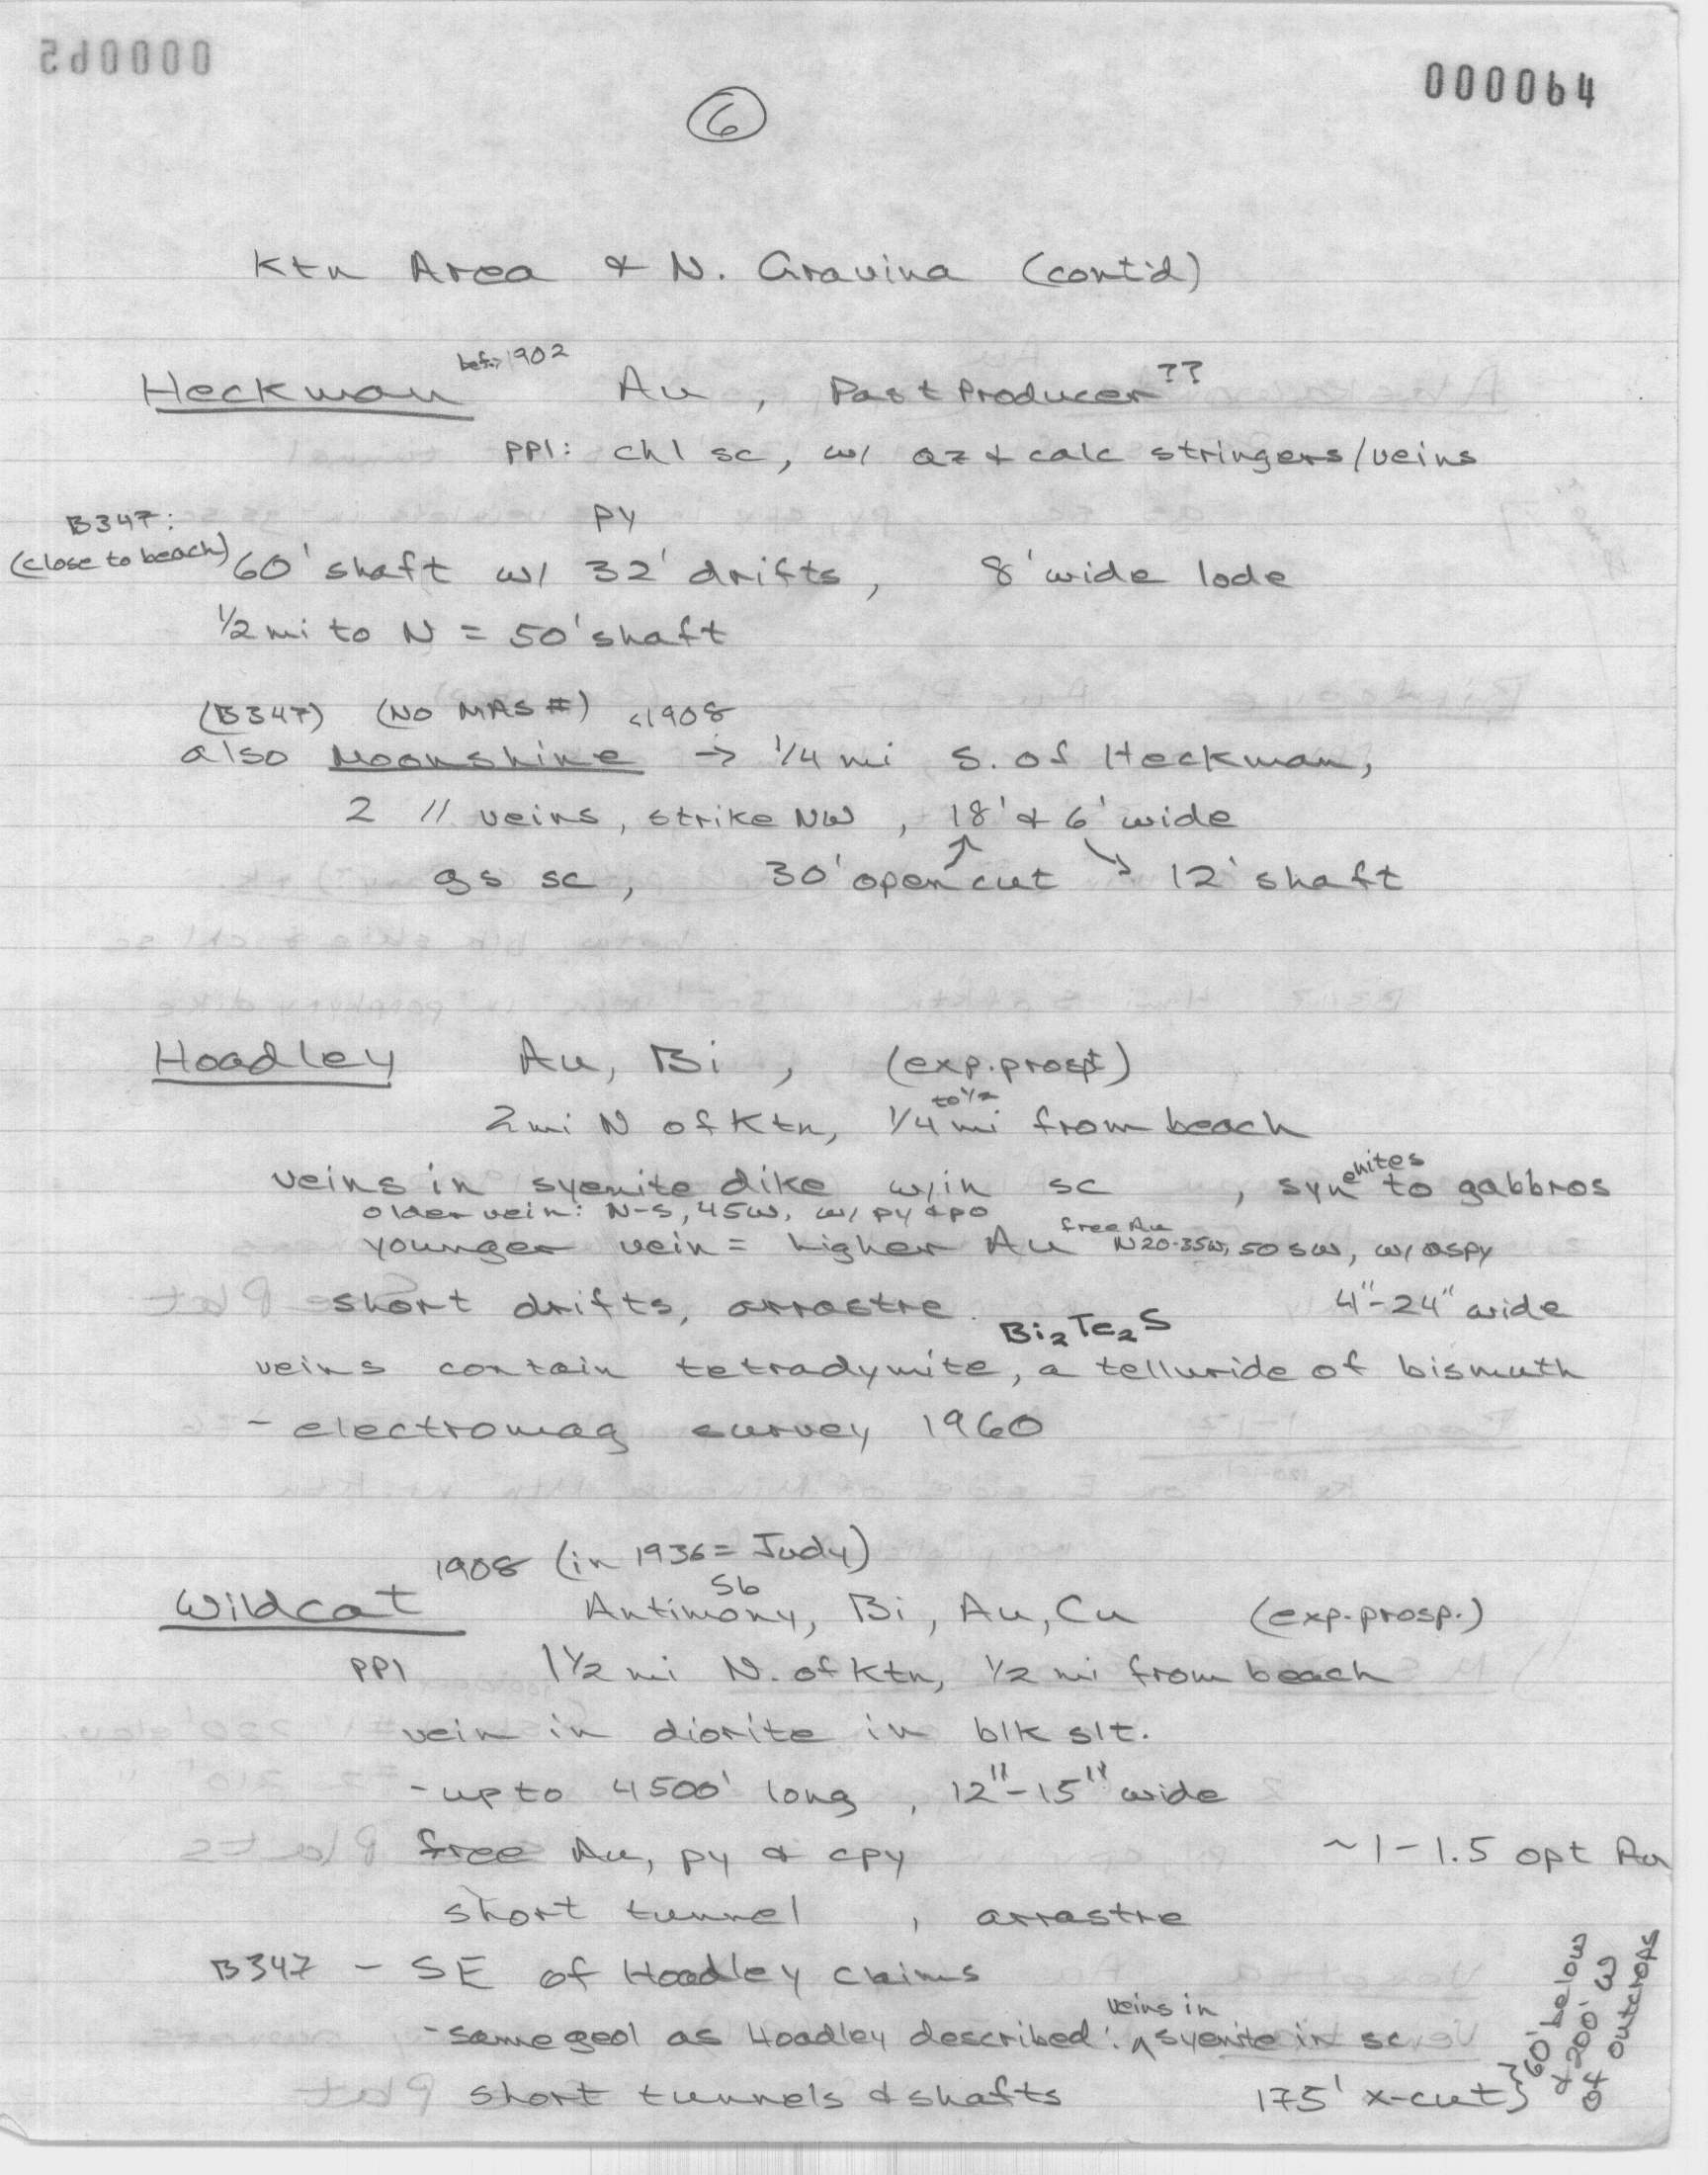 000064
6
Ktn Area & N. Gravina (cont'd)
Heckman bef. 1902 Au, Past Producer??
PP1: chl sc, w/ qz & calc stringers/veins
py
B347:
(close to beach) 60' shaft w/ 32' drifts, 8' wide lode
1/2 mi to N = 50' shaft
(B347) (No MAS #) <1908
also Moonshine → 1/4 mi S. of Heckman,
2 // veins, strike NW, 18' & 6' wide
gs sc, 30' open cut 12' shaft
Hoadley Au, Bi, (exp. prospt)
2 mi N of Ktn, 1/4 to 1/2 mi from beach
veins in syenite dike w/in sc, synenites to gabbros
older vein: N-S, 45W, w/ py & po
younger vein = higher Au free Au N20-35W, 50SW, w/ aspy
short drifts, arrastre. 4"-24" wide
Bi2Te2S
veins contain tetradymite, a telluride of bismuth
- electromag survey 1960
1908 (in 1936 = Judy)
Wildcat Antimony, Sb Bi, Au, Cu (exp. prosp.)
PP1 1 1/2 mi N. of Ktn, 1/2 mi from beach
vein in diorite in blk slt.
- up to 4500' long, 12"-15" wide
free Au, py & cpy ~1-1.5 opt Au
short tunnel, arrastre
B347 - SE of Hoadley claims
- same geol as Hoadley described: veins in syenite in sc
short tunnels & shafts 175' x-cut } 60' below
& 200' W
of outcrops